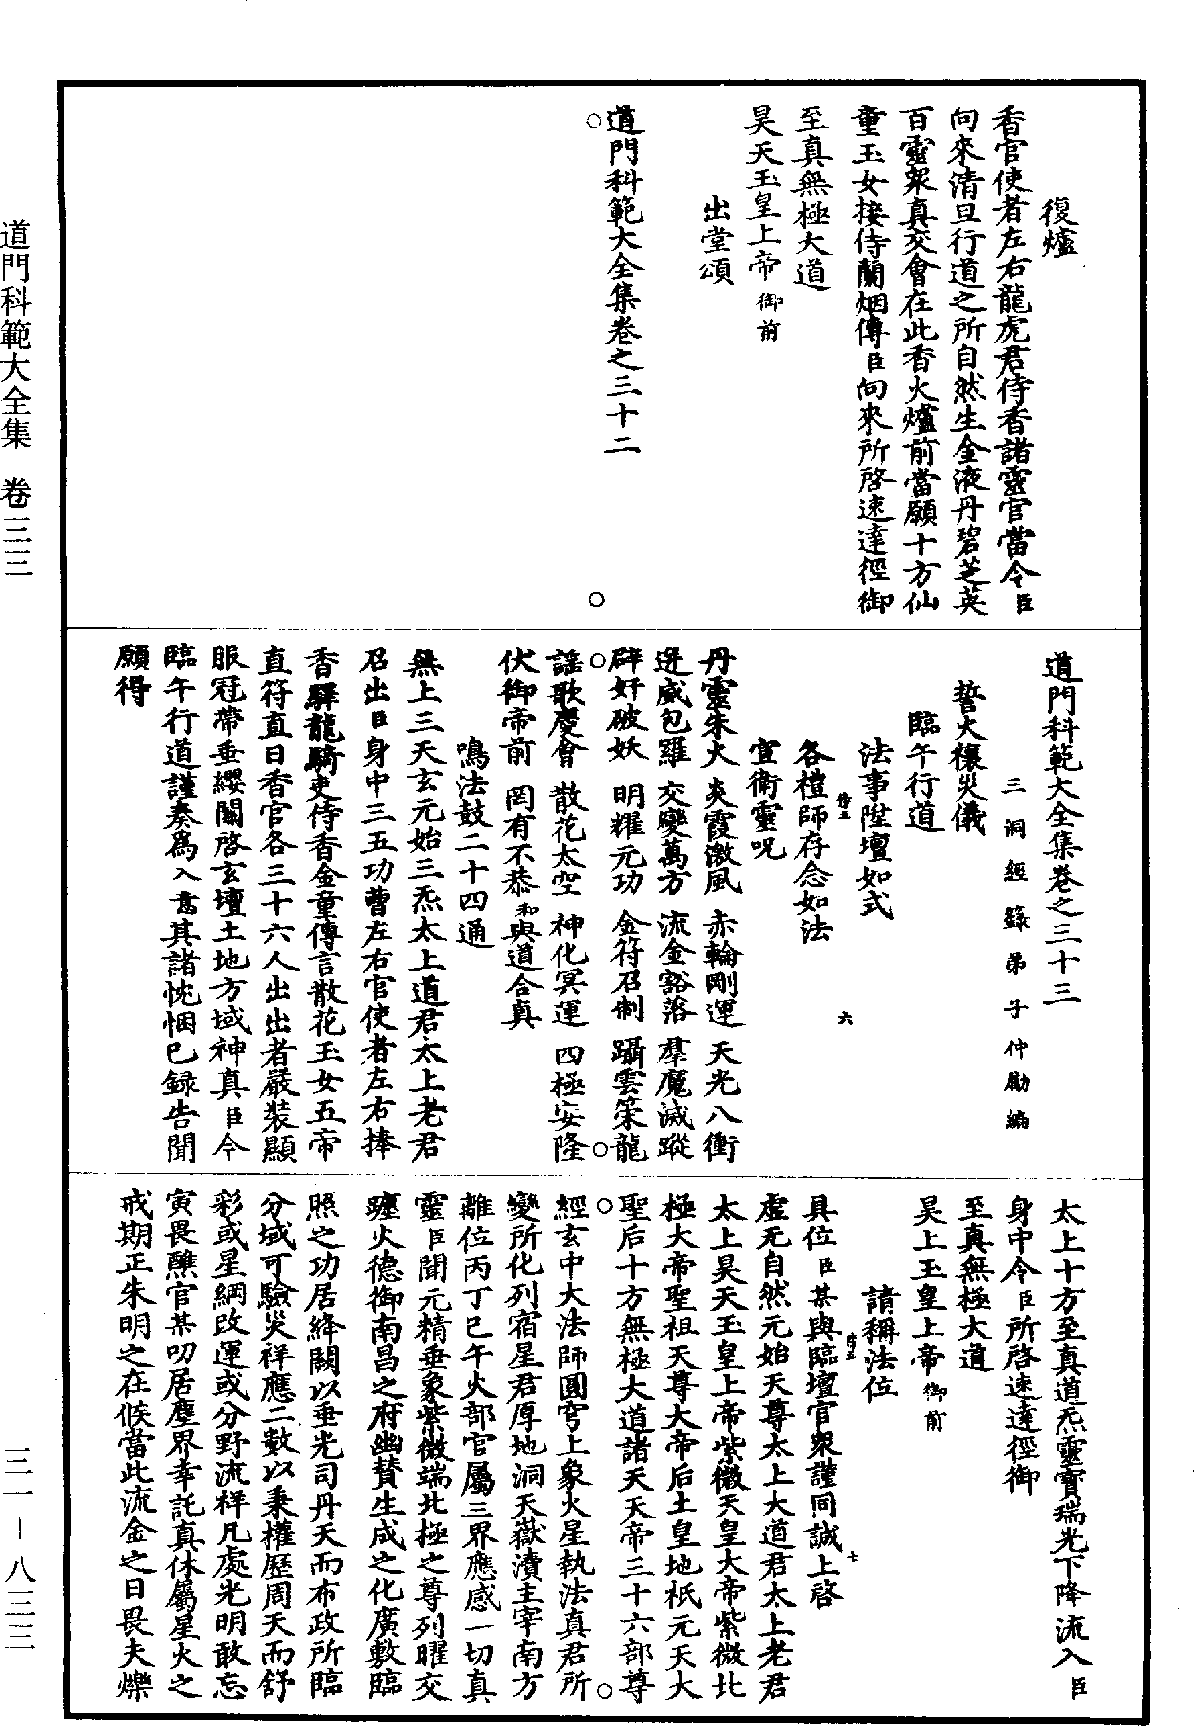 復爐
香官使者左右龍虎君侍香諸靈官當令臣
向來清旦行道之所自然生金液丹碧芝英
百靈衆真交會在此香火爐前當願十方仙
童玉女接侍蘭烟傳臣向來所啓速達徑御
至真無極大道
昊天玉皇上帝御前
出堂頌
道門科範大全集卷之三十二
道門科範大全集卷之三十三
三洞經籙弟子仲勵編
誓火禳災儀
臨午行道
法事陞壇如式
各禮師存念如法
宣衛靈呪
丹靈朱火 炎霞激風 赤輪剛運 天光八衝
迸威包羅 交變萬方 流金豁落 羣魔滅蹤
辟奸破妖 明耀元功 金符召制 躡雲策龍
謡歌慶會 散花太空 神化冥運 四極安隆
伏御帝前 罔有不恭和與道合真
鳴法鼓二十四通
無上三天玄元始三炁太上道君太上老君
召出臣身中三五功曹左右官使者左右捧
香驛龍騎吏侍香金童傳言散花玉女五帝
直符直日香官各三十六人出出者嚴裝顯
服冠帶垂纓關啓玄壇土地方域神真臣今
臨午行道謹奏爲入意其諸忱悃已録告聞
願得
太上十方至真道炁靈寶瑞光下降流入臣
身中令臣所啓速達徑御
至真無極大道
昊上玉皇上帝御前
請稱法位
具位臣某與臨壇官衆謹同誠上啓
虚无自然元始天尊太上大道君太上老君
太上昊天玉皇上帝紫微天皇大帝紫微北
極大帝聖祖天尊大帝后土皇地祇元天大
聖后十方無極大道諸天天帝三十六部尊
經玄中大法師圓穹上象火星執法真君所
變所化列宿星君厚地洞天嶽瀆主宰南方
離位丙丁巳午火部官屬三界應感一切真
靈臣聞元精垂象紫微端北極之尊列曜交
躔火德御南昌之府幽賛生成之化廣敷臨
照之功居絳闕以垂光司丹天而布政所臨
分域可驗災祥應二數以秉權歷周天而舒
彩或星綱改運或分野流祥凡處光明敢忘
寅畏醮官某叨居塵界幸託真休屬星火之
戒期正朱明之在候當此流金之日畏夫爍
道門科範大全集 卷三三
三一－八三三